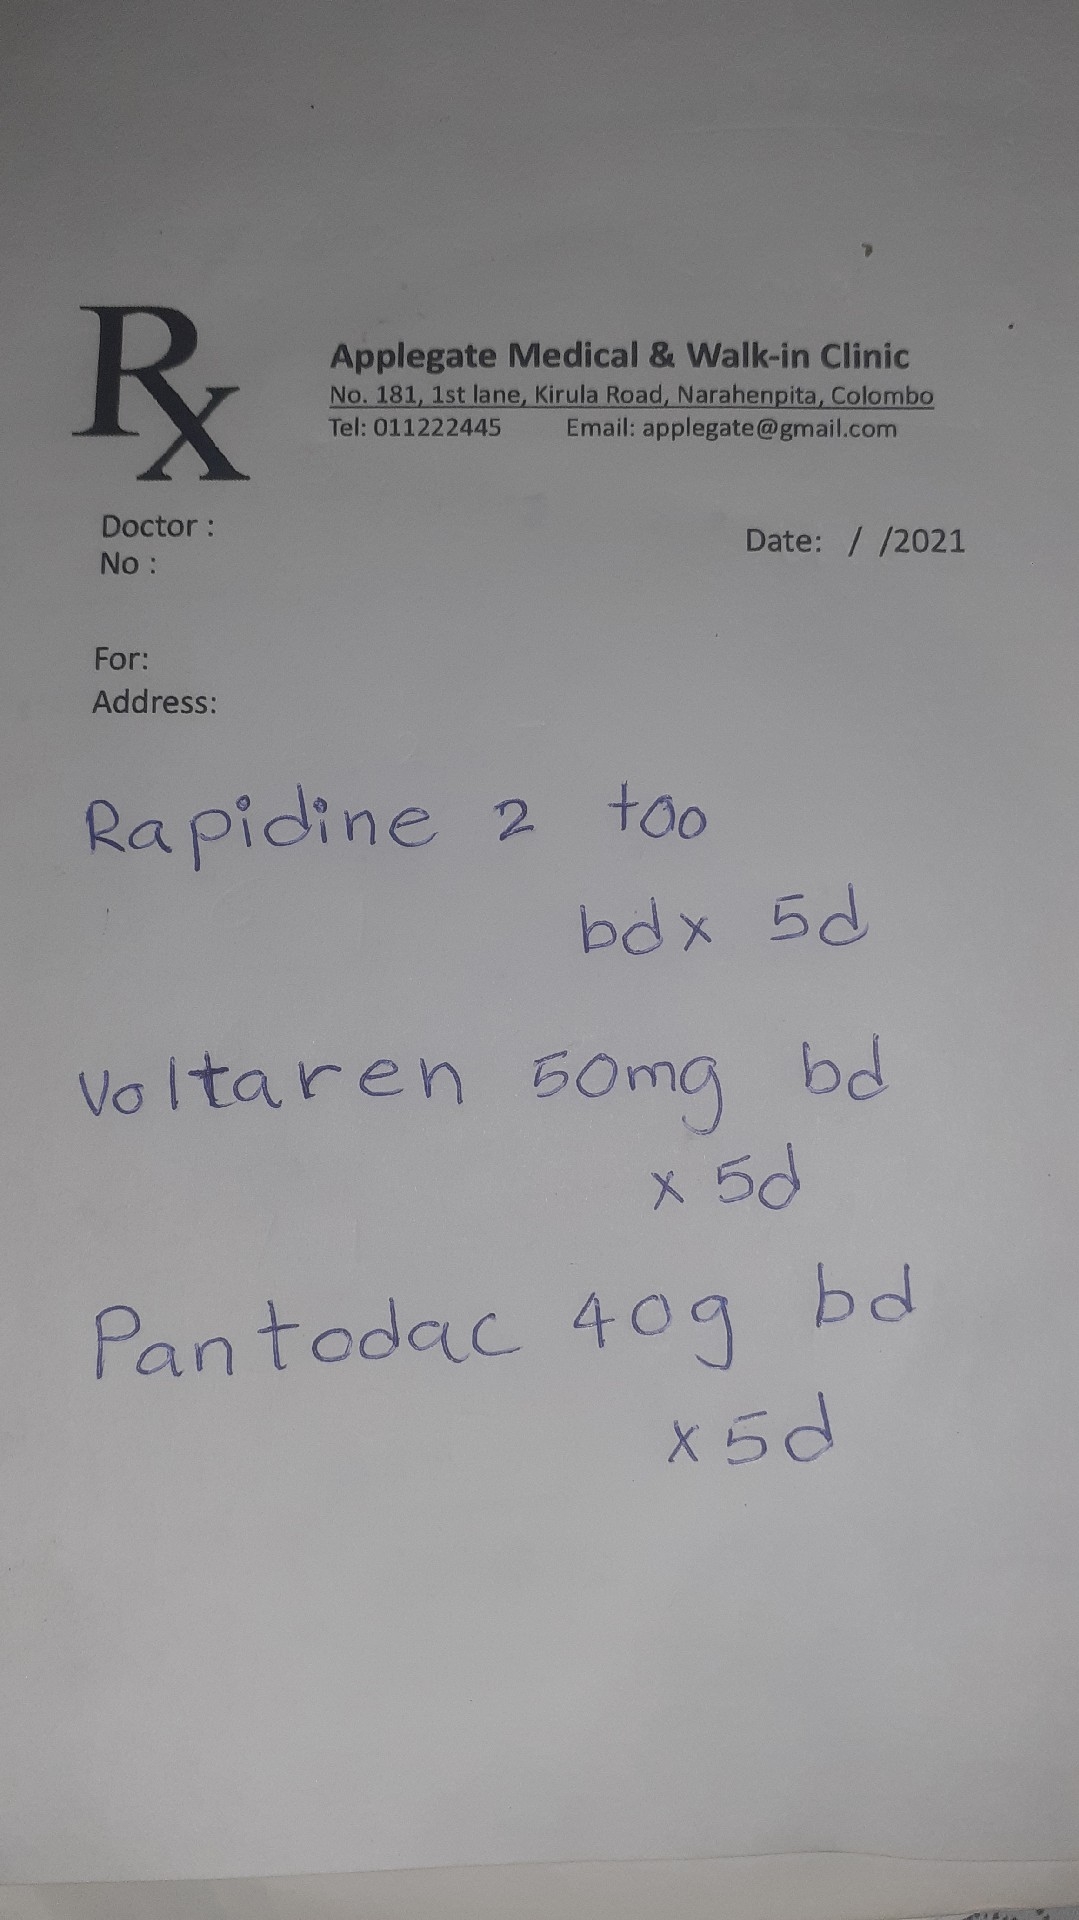 Rx
Applegate Medical & Walk-in Clinic
No. 181, 1st lane, Kirula Road, Narahenpita, Colombo
Tel: 011222445 Email: applegate@gmail.com
Doctor :
No :
Date: / /2021
For:
Address:
Rapidine 2 too
bdx 5d
Voltaren 50mg bd
x 5d
Pantodac 40g bd
x 5d